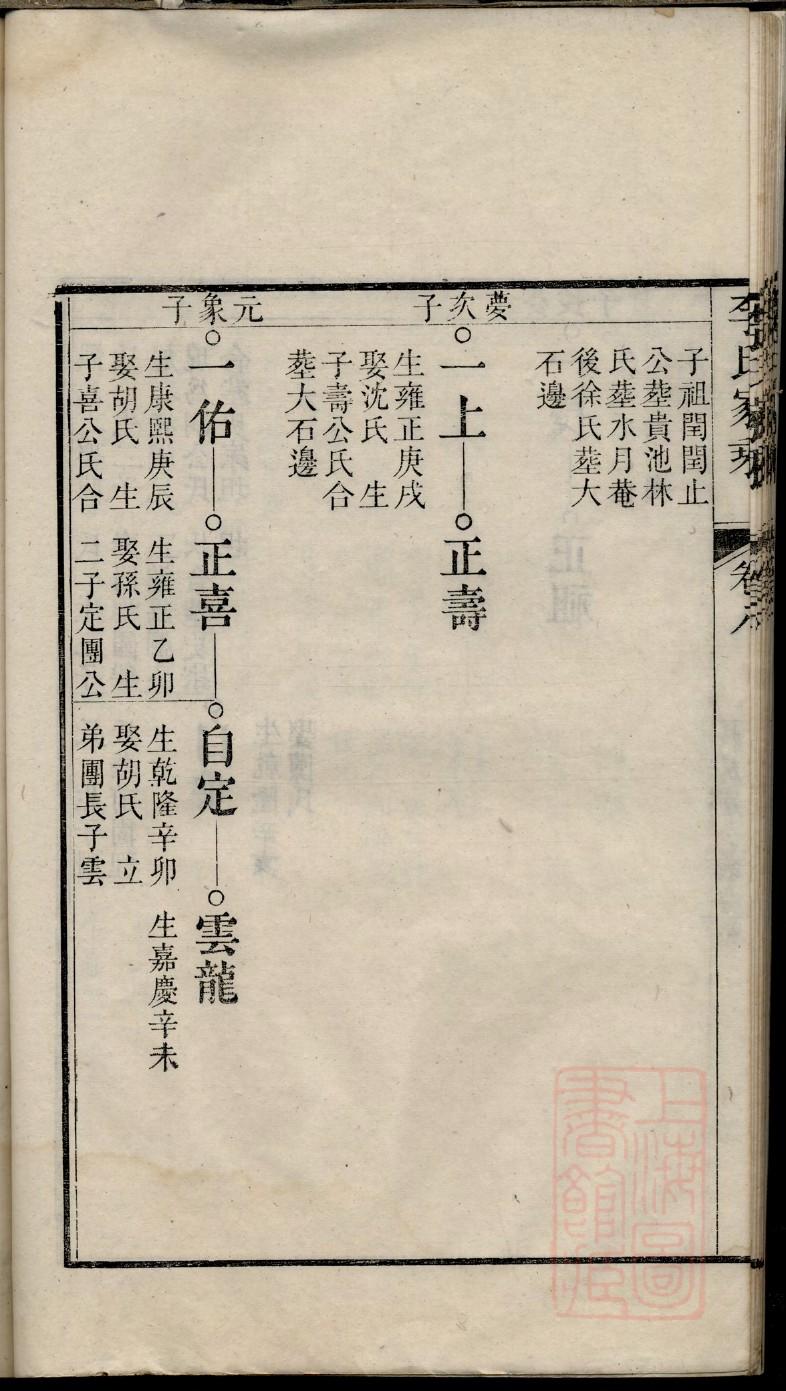 李氏家
卷
子祖閏閏止
公塟貴池林
氏塟水月菴
後徐氏塟大
石邊
夢次子
一上 正壽
生雍正庚戌
娶沈氏 生
子壽公氏合
塟大石邊
元象子
一佑 正喜 自定 雲龍
生康熙庚辰 生雍正乙卯 生乾隆辛卯 生嘉慶辛未
娶胡氏 生 娶孫氏 生 娶胡氏 立
子喜公氏合 二子定團公 弟團長子雲
上海圖
書館藏